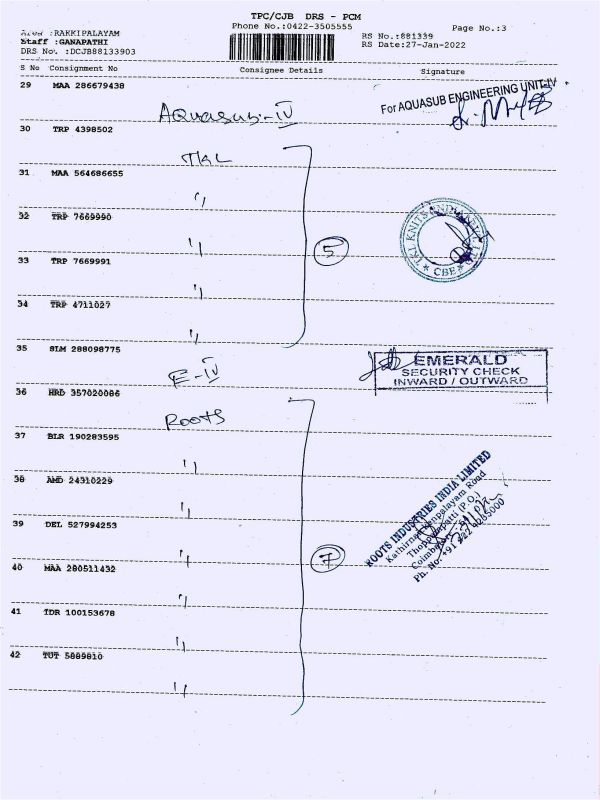 TPC/CJB DRS - PCM
Phone No.:0422-3505555
Page No.:3
Area :RAKKIPALAYAM
Staff :GANAPATHI
DRS No. :DCJB88133903
RS No.:881339
RS Date:27-Jan-2022
S No Consignment No Consignee Details Signature
29 MAA 286679438
Aquasub-IV
For AQUASUB ENGINEERING UNIT-IV
30 TRP 4398502
TKL
31 MAA 564686655
"
32 TRP 7669990
"
33 TRP 7669991
5
"
34 TRP 4711027
"
CBE
35 SLM 288098775
E-IV
EMERALD
SECURITY CHECK
INWARD / OUTWARD
36 HRD 357020086
Roots
37 BLR 190283595
"
38 AMD 24310229
"
39 DEL 527994253
"
7
40 MAA 280511432
"
41 TDR 100153678
"
42 TUT 5889810
"
ROOTS INDUSTRIES INDIA LIMITED
Road
Ph. No.